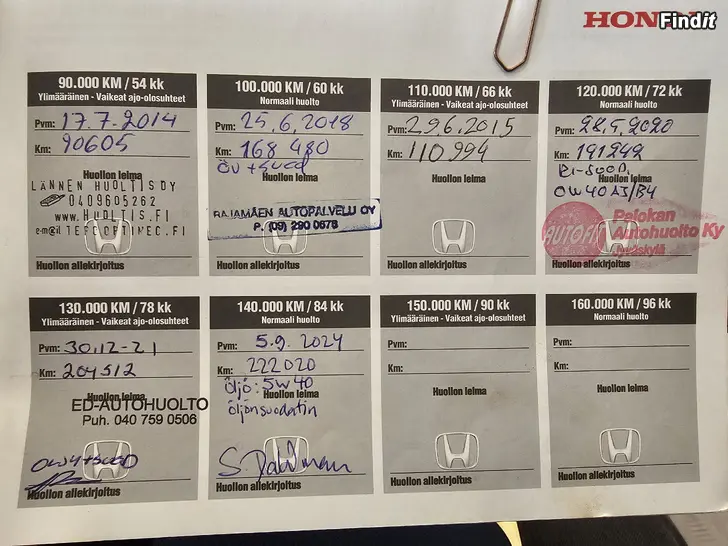 HONDA
Findit
90.000 KM / 54 kk
Ylimääräinen - Vaikeat ajo-olosuhteet
Pvm: 17.7.2014
Km: 90605
Huollon leima
LÄNNEN HUOLTIS OY
0409605262
WWW.HUOLTIS.FI
Huollon allekirjoitus
100.000 KM / 60 kk
Normaali huolto
Pvm: 25.6.2018
Km: 168 480
ÖV + suod
Huollon leima
RAJAMÄEN AUTOPALVELU OY
P. (09) 290 0678
Huollon allekirjoitus
110.000 KM / 66 kk
Ylimääräinen - Vaikeat ajo-olosuhteet
Pvm: 29.6.2015
Km: 110 994
Huollon leima
Huollon allekirjoitus
120.000 KM / 72 kk
Normaali huolto
Pvm: 28.5.2020
Km: 191242
Huollon leima
Palokan
Autohuolto Ky
Jyväskylä
Huollon allekirjoitus
130.000 KM / 78 kk
Ylimääräinen - Vaikeat ajo-olosuhteet
Pvm: 30.12-21
Km: 204512
Huollon leima
ED-AUTOHUOLTO
Puh. 040 759 0506
Huollon allekirjoitus
140.000 KM / 84 kk
Normaali huolto
Pvm: 5.9.2024
Km: 222020
Huollon leima
öljö: 5W40
öljönsuodatin
Huollon allekirjoitus
150.000 KM / 90 kk
Ylimääräinen - Vaikeat ajo-olosuhteet
Pvm:
Km:
Huollon leima
Huollon allekirjoitus
160.000 KM / 96 kk
Normaali huolto
Pvm:
Km:
Huollon leima
Huollon allekirjoitus